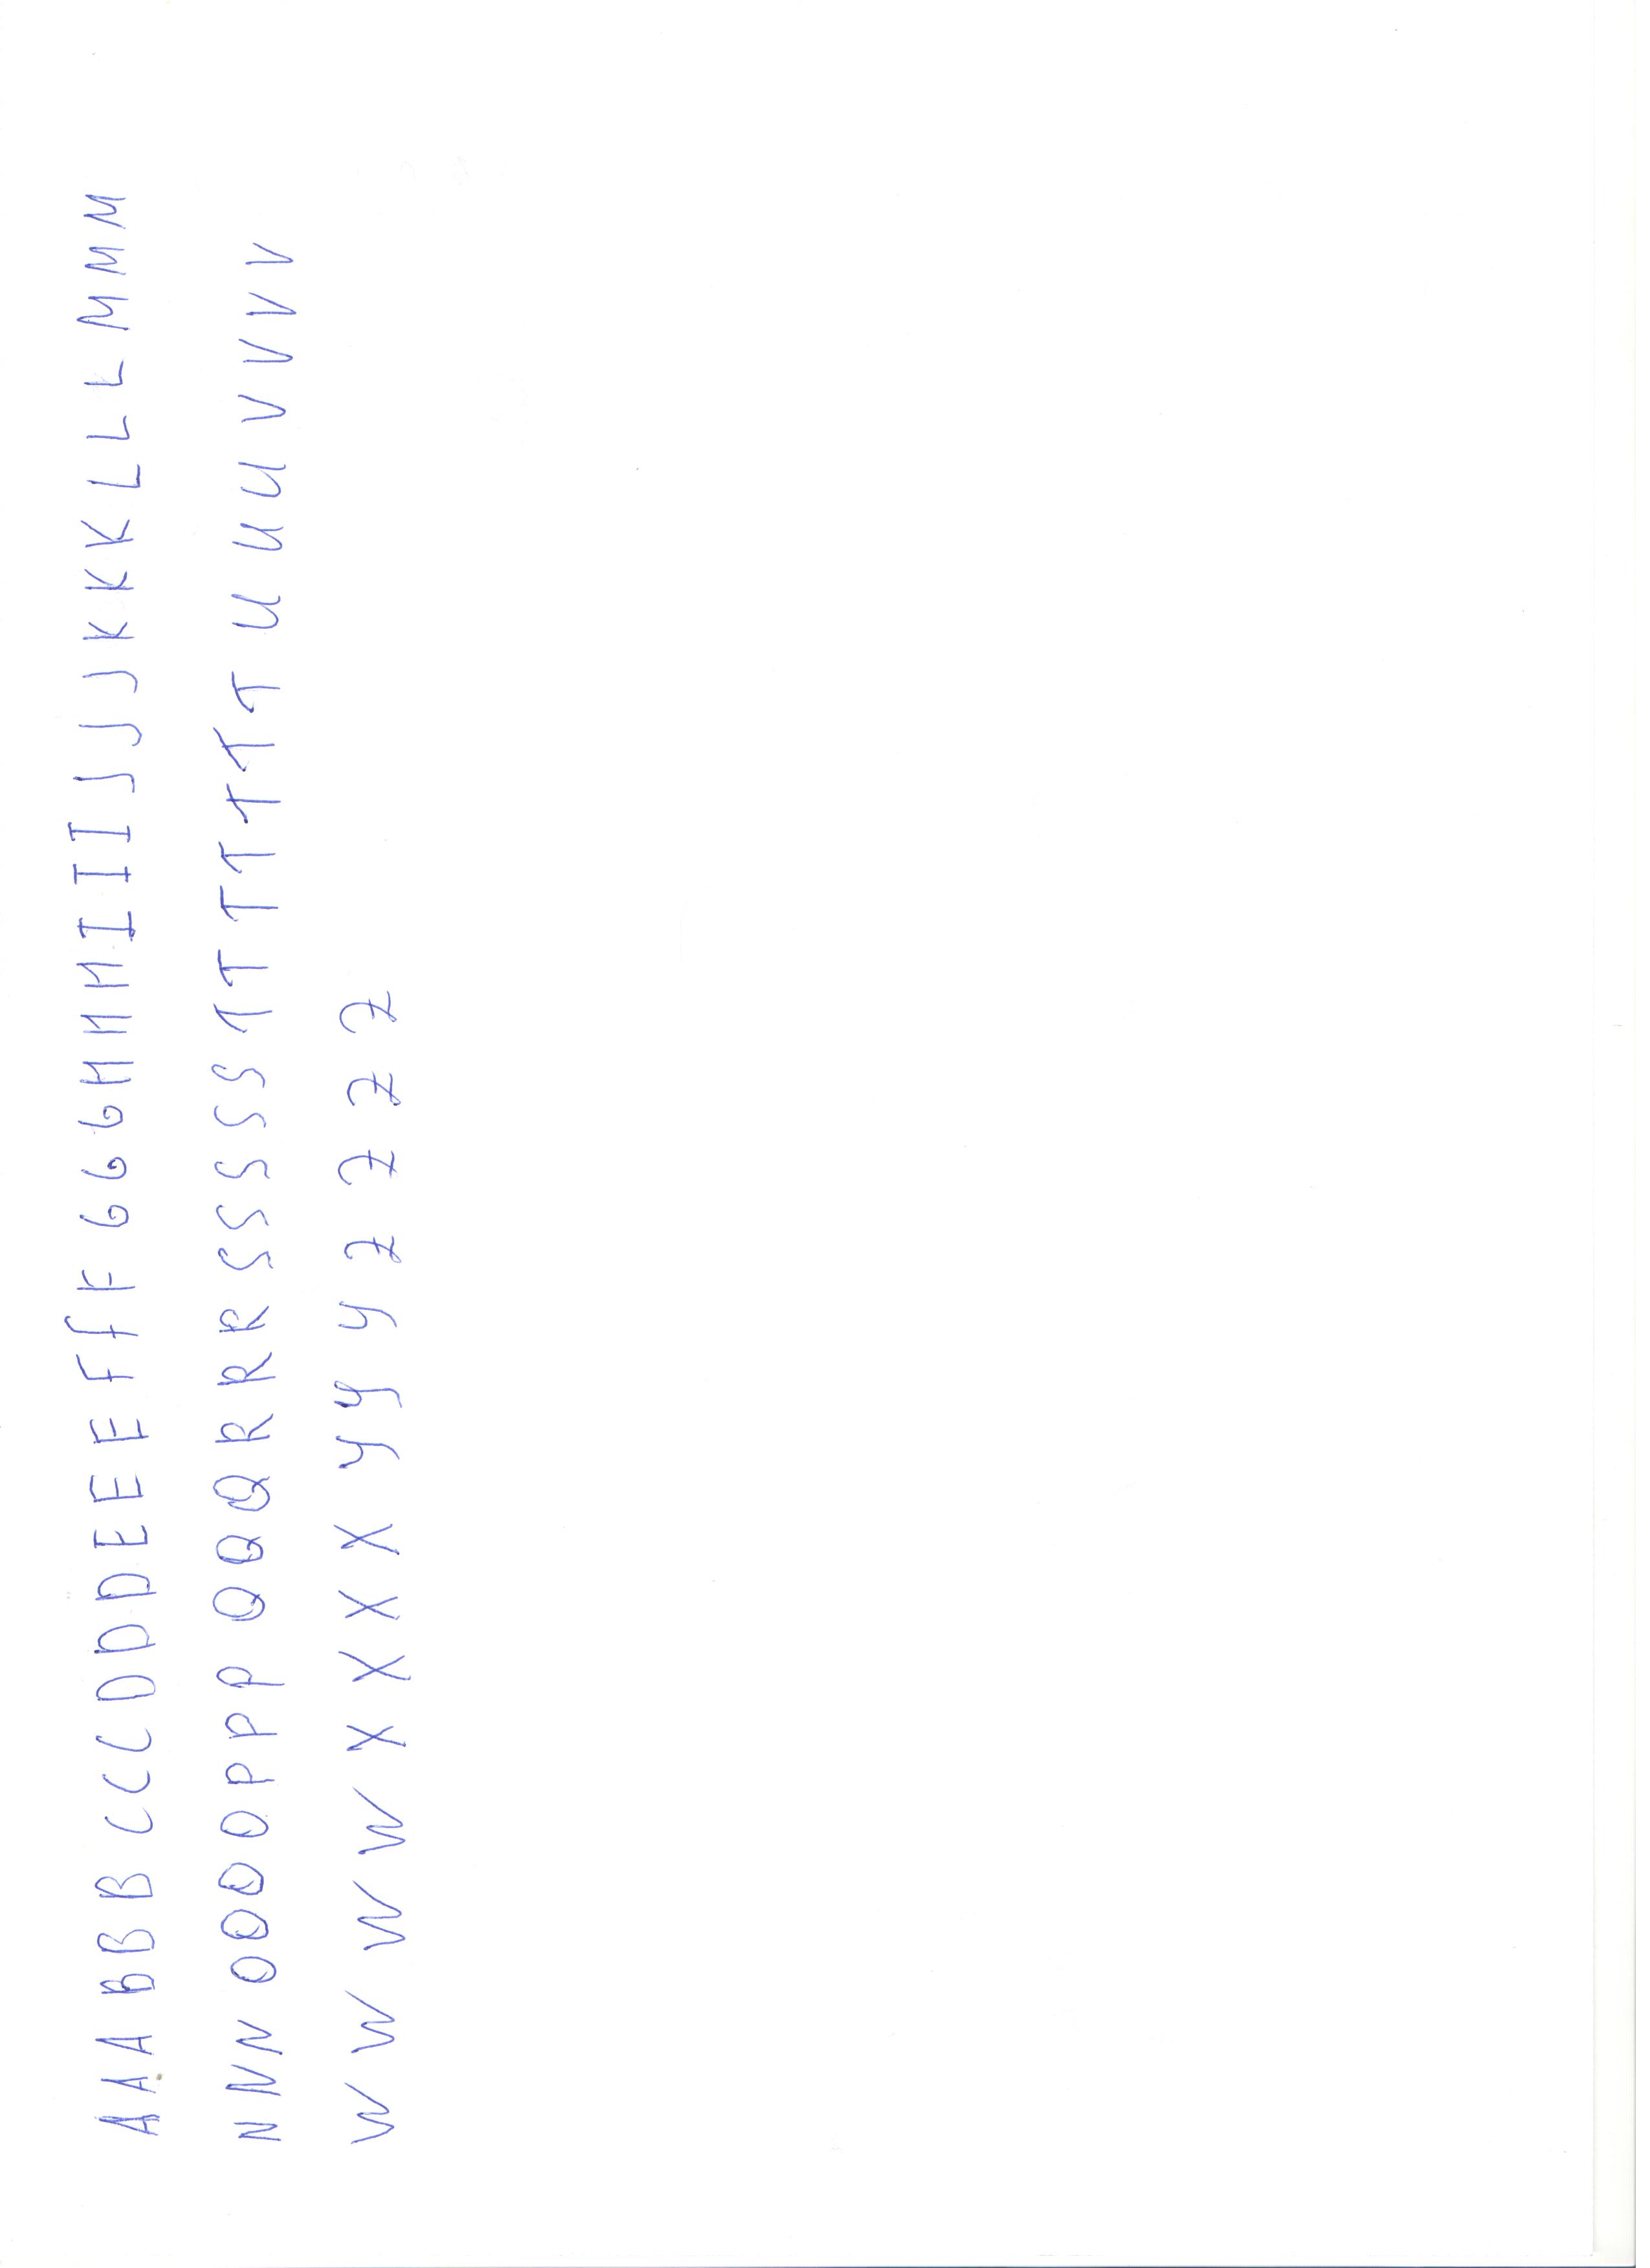 A A A B B B C C C D D D E E E F F F G G G H H H I I I J J J K K K L L L M M M
N N N O O O O P P P Q Q Q R R R S S S S S T T T T T T T U U U V V V V
W W W W X X X X Y Y Y Z Z Z Z